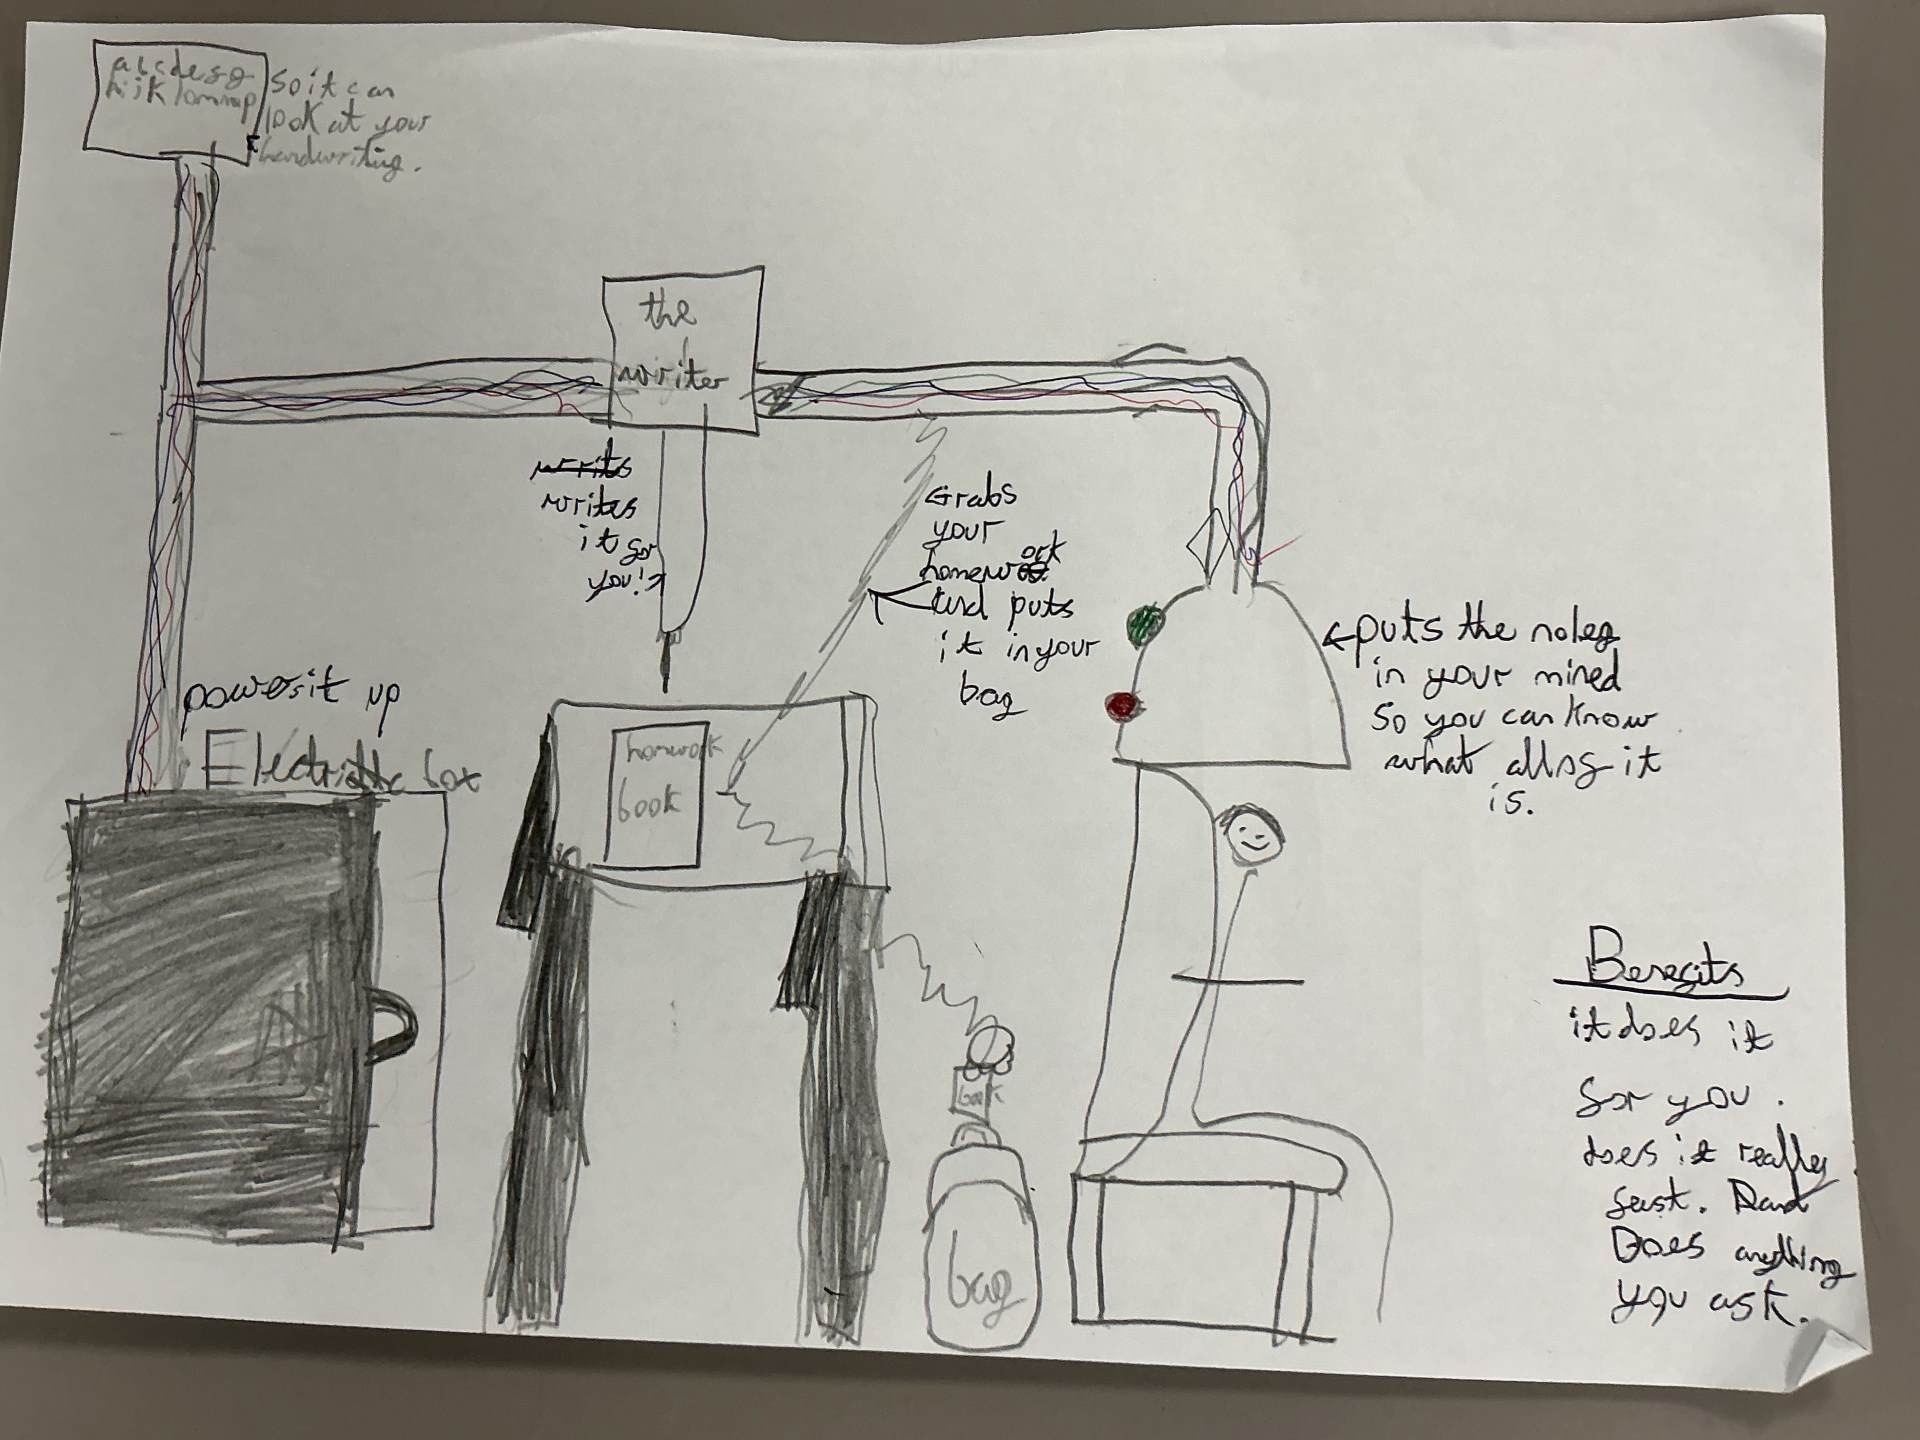 abcdesg
hijklomnop
so it can
look at your
handwriting.
the
writer
writs
writes
it sor
you!
Grabs
your
homework
and puts
it in your
bag
puts the noleg
in your mined
so you can know
what allos it
is.
powers it up
box
homework
book
book
bag
Benesits
it does it
sor you.
does it really
sast.
Does anything
you ask.